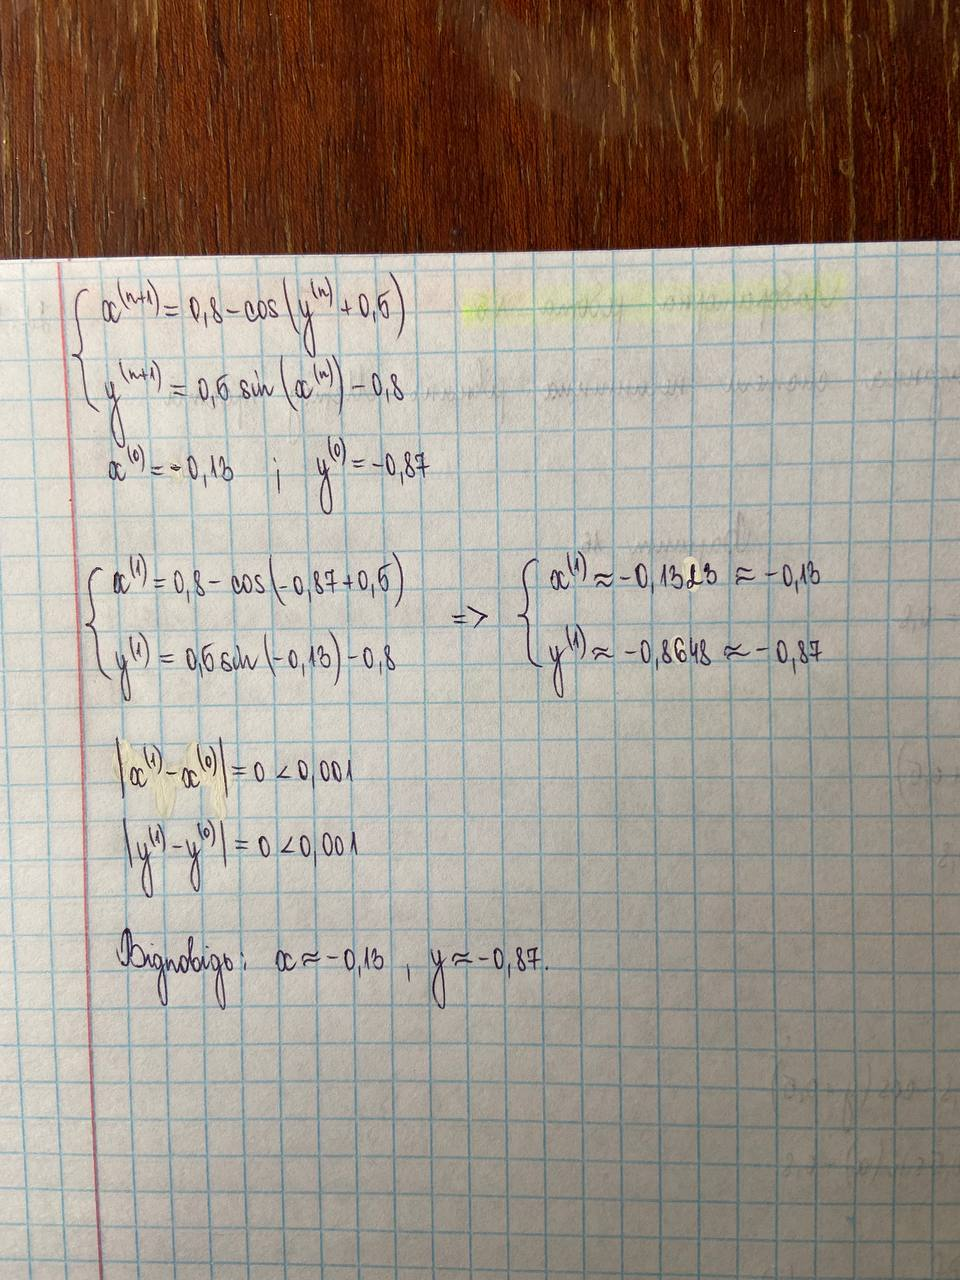 x⁽ⁿ⁺¹⁾ = 0,8 - cos(y⁽ⁿ⁾ + 0,5)
y⁽ⁿ⁺¹⁾ = 0,5 sin(x⁽ⁿ⁾) - 0,8
x⁽⁰⁾ = -0,13 ; y⁽⁰⁾ = -0,87
x⁽¹⁾ = 0,8 - cos(-0,87 + 0,5) => x⁽¹⁾ ≈ -0,1323 ≈ -0,13
y⁽¹⁾ = 0,5 sin(-0,13) - 0,8 y⁽¹⁾ ≈ -0,8648 ≈ -0,87
|x⁽¹⁾ - x⁽⁰⁾| = 0 < 0,001
|y⁽¹⁾ - y⁽⁰⁾| = 0 < 0,001
Відповідь: x ≈ -0,13 , y ≈ -0,87.